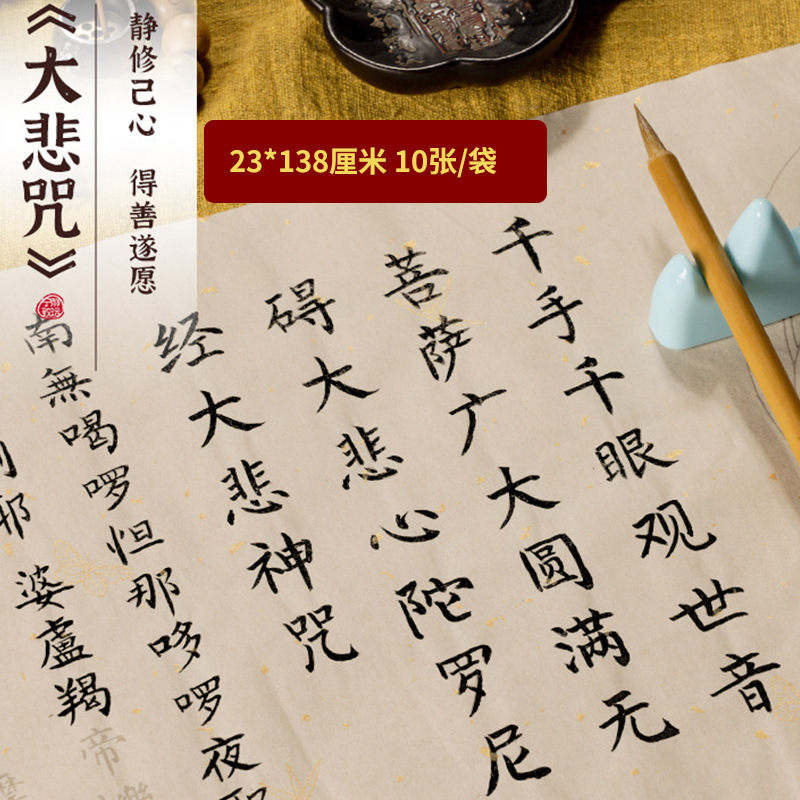 《大悲咒》
静修己心 得善遂愿
23*138厘米 10张/袋
千手千眼观世音
菩萨广大圆满无
碍大悲心陀罗尼
经大悲神咒
南無喝啰怛那哆啰夜
婆盧羯帝